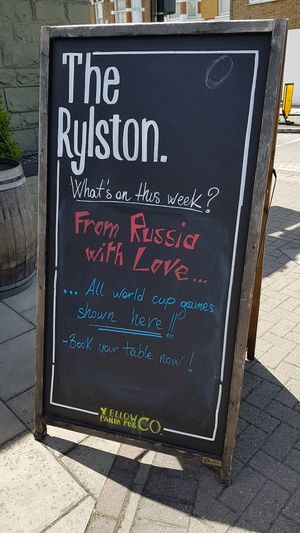 The
Rylston.
What's on this week?
From Russia
with Love...
... All world cup games
shown here!!
- Book your table now!
YELLOW
PANDA PUB CO.